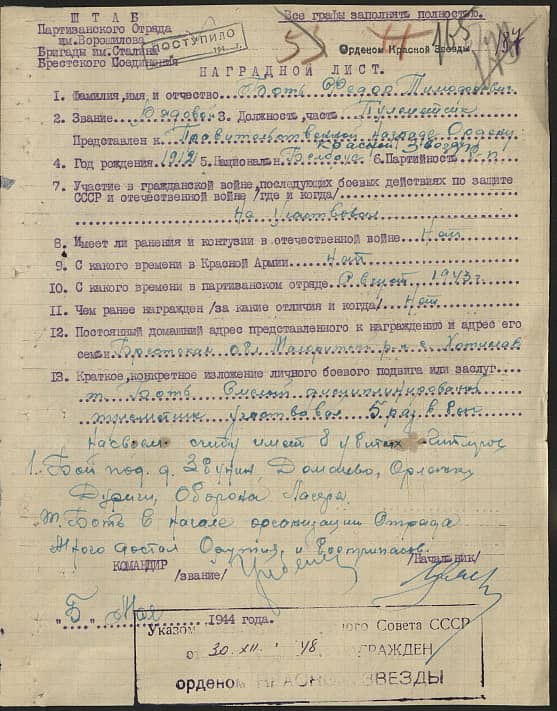 ШТАБ
Партизанского Отряда
им. Ворошилова
Бригады им. Сталина
Брестского Соединения
ПОСТУПИЛО
Все графы заполнять полностью.
Орденом Красной Звезды
НАГРАДНОЙ ЛИСТ.
1. Фамилия, имя, и отчество Боть Федор Тимофеевич
2. Звание Рядовой 3. Должность, часть Пулеметчик
Представлен к Правительственной награде Ордену
Красной Звезды
4. Год рождения 1919 5. Националь н. Белорус 6. Партийность б.п
7. Участие в гражданской войне, последующих боевых действиях по защите
СССР и отечественной войне /где и когда/
Не участвовал
8. Имеет ли ранения и контузии в отечественной войне Нет
9. С какого времени в Красной Армии Нет
10. С какого времени в партизанском отряде 1943 г.
11. Чем ранее награжден /за какие отличия и когда/ Нет
12. Постоянный домашний адрес представленного к награждению и адрес его
семьи Брестская обл. р-н с. Хотислав
13. Краткое, конкретное изложение личного боевого подвига или заслуг
т. Боть Смелый дисциплинированый
участвовал 5 раз в
На своем счету имеет 8 убитых
1. Бой под д. Домачево,
Оборона Лагеря.
Т. Боть в начале организации Отряда
Много достал Оружия и Боеприпасов
КОМАНДИР /звание/
/Начальник/
"5" Мая 1944 года.
Указом Верховного Совета СССР
от 30.XII. 48 НАГРАЖДЕН
орденом КРАСНОЙ ЗВЕЗДЫ